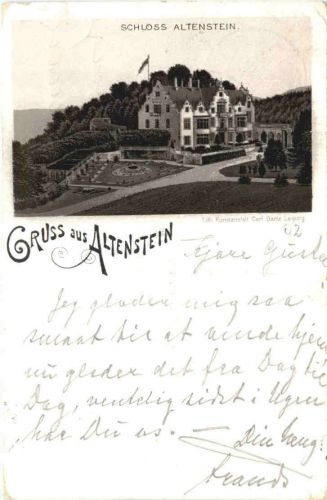 SCHLOSS ALTENSTEIN.
Lith. Kunstanstalt Carl Garte Leipzig
92
GRUSS aus ALTENSTEIN
Kjære Gusta
Jeg glæder mig saa
smaat til at vende hjem
nu glæder det fra Dag til
Dag, ventelig sidst i Ugen
har Du os.
Din